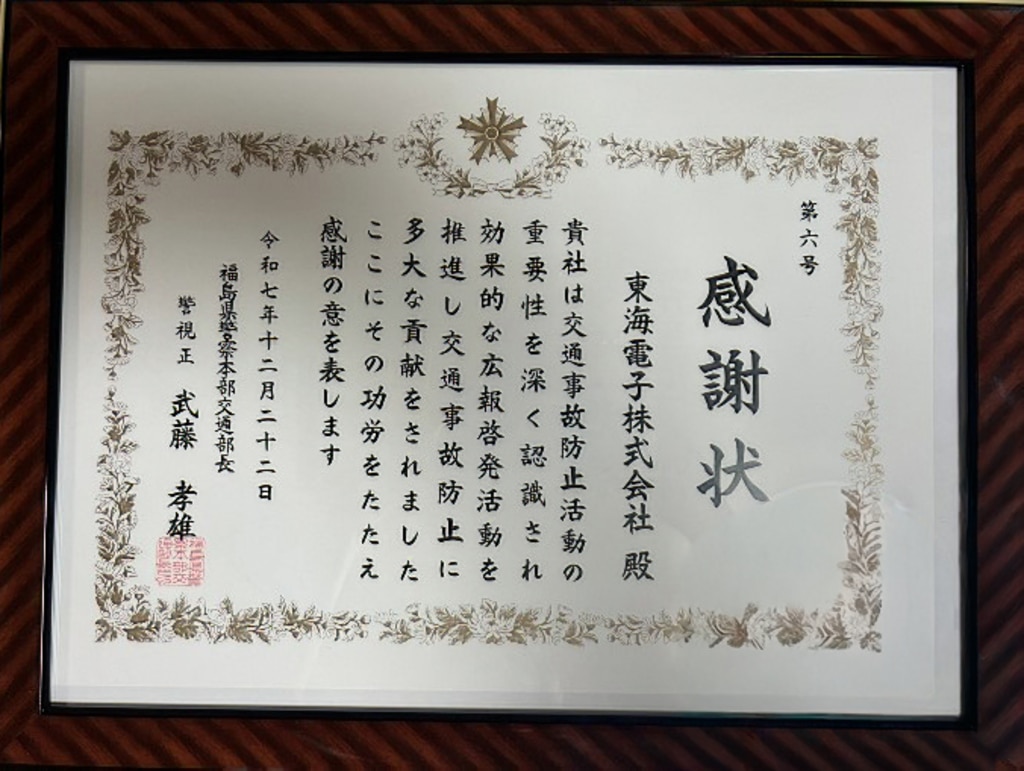 第六号
感謝状
東海電子株式会社 殿
貴社は交通事故防止活動の
重要性を深く認識され
効果的な広報啓発活動を
推進し交通事故防止に
多大な貢献をされました
ここにその功労をたたえ
感謝の意を表します
令和七年十二月二十二日
福島県警察本部交通部長
警視正 武藤 孝雄